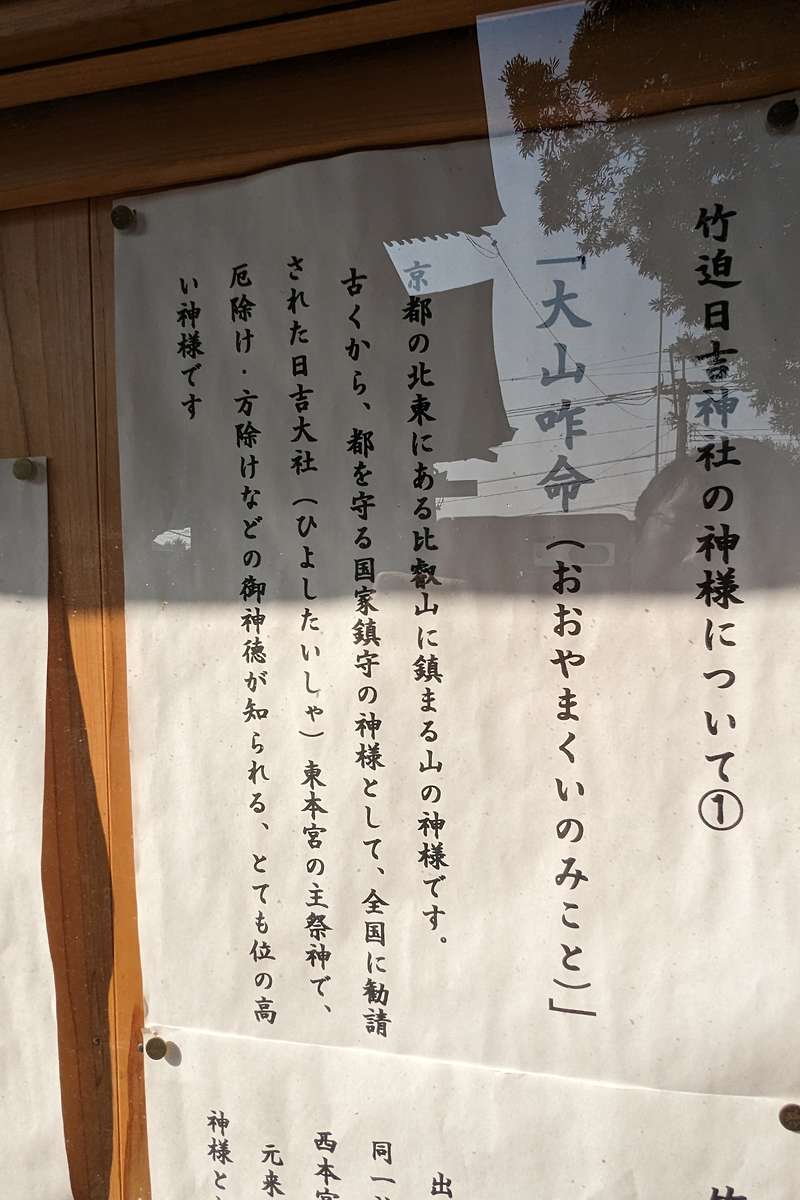 竹迫日吉神社の神様について①
「大山咋命（おおやまくいのみこと）」
京都の北東にある比叡山に鎮まる山の神様です。
古くから、都を守る国家鎮守の神様として、全国に勧請
された日吉大社（ひよしたいしゃ）東本宮の主祭神で、
厄除け・方除けなどの御神徳が知られる、とても位の高
い神様です
出
同一
西本宮
元来
神様と